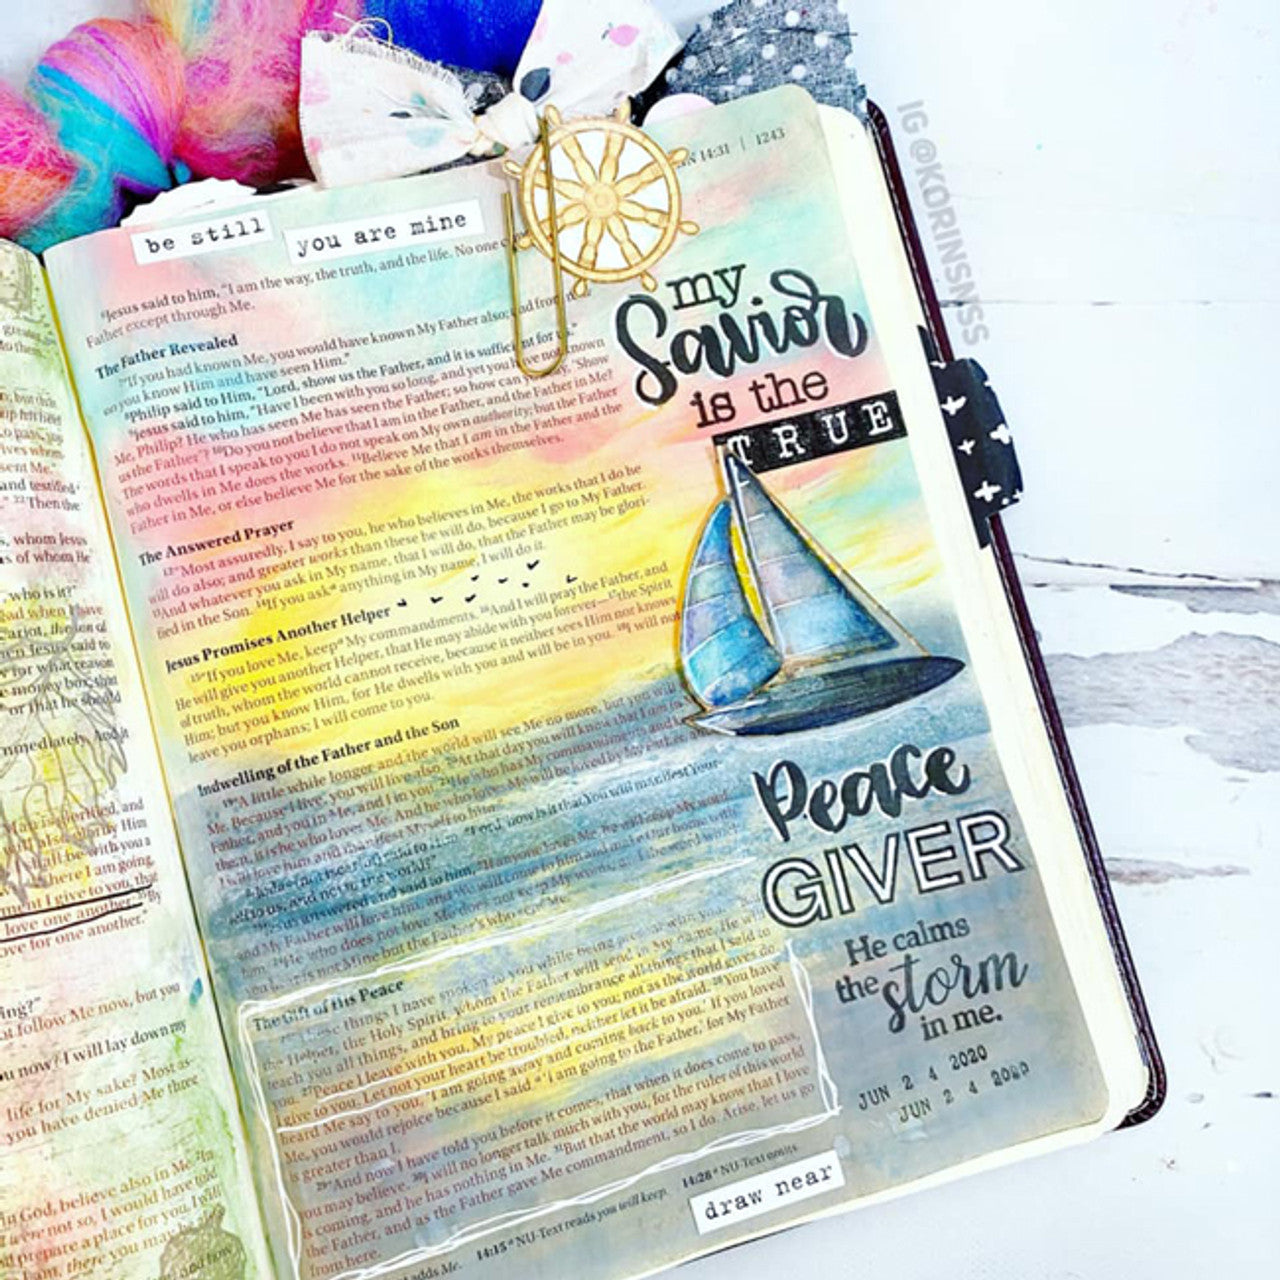 IG@KORINSNSS
N 14:31 | 1243
be still
you are mine
Jesus said to him, "I am the way, the truth, and the life. No one
Father except through Me.
The Father Revealed
7"If you had known Me, you would have known My Father also; and from
you know Him and have seen Him."
8Philip said to Him, "Lord, show us the Father, and it is sufficient for us."
9Jesus said to him, "Have I been with you so long, and yet you have not known
Me, Philip? He who has seen Me has seen the Father; so how can you say, 'Show
us the Father'? 10Do you not believe that I am in the Father, and the Father in Me?
The words that I speak to you I do not speak on My own authority; but the Father
who dwells in Me does the works. 11Believe Me that I am in the Father and the
Father in Me, or else believe Me for the sake of the works themselves.
The Answered Prayer
12"Most assuredly, I say to you, he who believes in Me, the works that I do he
will do also; and greater works than these he will do, because I go to My Father.
13And whatever you ask in My name, that I will do, that the Father may be glori-
fied in the Son. 14If you ask anything in My name, I will do it.
Jesus Promises Another Helper
15"If you love Me, keep My commandments. 16And I will pray the Father, and
He will give you another Helper, that He may abide with you forever— 17the Spirit
of truth, whom the world cannot receive, because it neither sees Him nor knows
Him; but you know Him, for He dwells with you and will be in you. 18I will not
leave you orphans; I will come to you.
Indwelling of the Father and the Son
19"A little while longer and the world will see Me no more, but you will
Me. Because I live, you will live also. 20At that day you will know that I am in
Father, and you in Me, and I in you. 21He who has My commandments and
them, it is he who loves Me. And he who loves Me will be loved by My Father, and
I will love him and manifest Myself to him."
said to Him, "Lord, how is it that You will manifest Your-
to us, and not to the world?"
Jesus answered and said to him, "If anyone loves Me, he will keep My word
and My Father will love him, and We will come to him and make Our home with
him. 24He who does not love Me does not keep My words;
is not Mine but the Father's who sent Me.
The Gift of His Peace
these things I have spoken to you while being present with you.
the Helper, the Holy Spirit, whom the Father will send in My name, He will
teach you all things, and bring to your remembrance all things that I said to
you. 27Peace I leave with you, My peace I give to you; not as the world gives do
I give to you. Let not your heart be troubled, neither let it be afraid. 28You have
heard Me say to you, 'I am going away and coming back to you.' If you loved
Me, you would rejoice because I said 'I am going to the Father,' for My Father
is greater than I.
29"And now I have told you before it comes, that when it does come to pass,
you may believe. 30I will no longer talk much with you, for the ruler of this world
is coming, and he has nothing in Me. 31But that the world may know that I love
the Father, and as the Father gave Me commandment, so I do. Arise, let us go
from here.
14:15 NU-Text reads you will keep. 14:28 NU-Text omits
my
Savior
is the
TRUE
Peace
GIVER
He calms
the storm
in me.
JUN 2 4 2020
JUN 2 4 2020
draw near